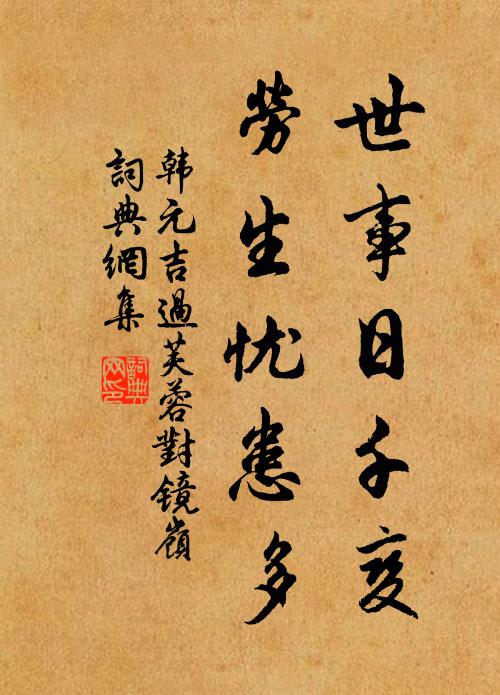 世事日千变
劳生忧患多
韩元吉過芙蓉對镜嶺
詞典網集
詞典网印